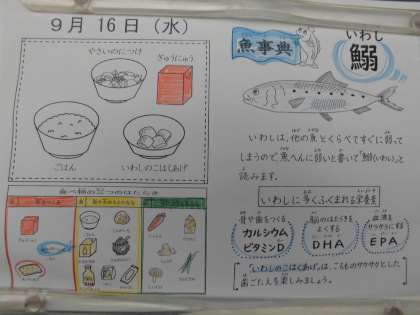 9月16日（水）
やさいのにつけ
ぎゅうにゅう
ごはん
いわしのこはくあげ
食べ物の三つのはたらき
魚事典
いわし
鰯
いわしは、他の魚とくらべてすぐに弱って
しまうので魚へんに弱いと書いて「鰯(いわし)」と
読みます。
いわしに多くふくまれる栄養素
骨や歯をつくる
カルシウム
ビタミンD
脳のはたらきを
よくする
DHA
血液を
サラサラにする
EPA
「いわしのこはくあげ」は、ころものサクサクとした
歯ごたえを楽しみましょう。